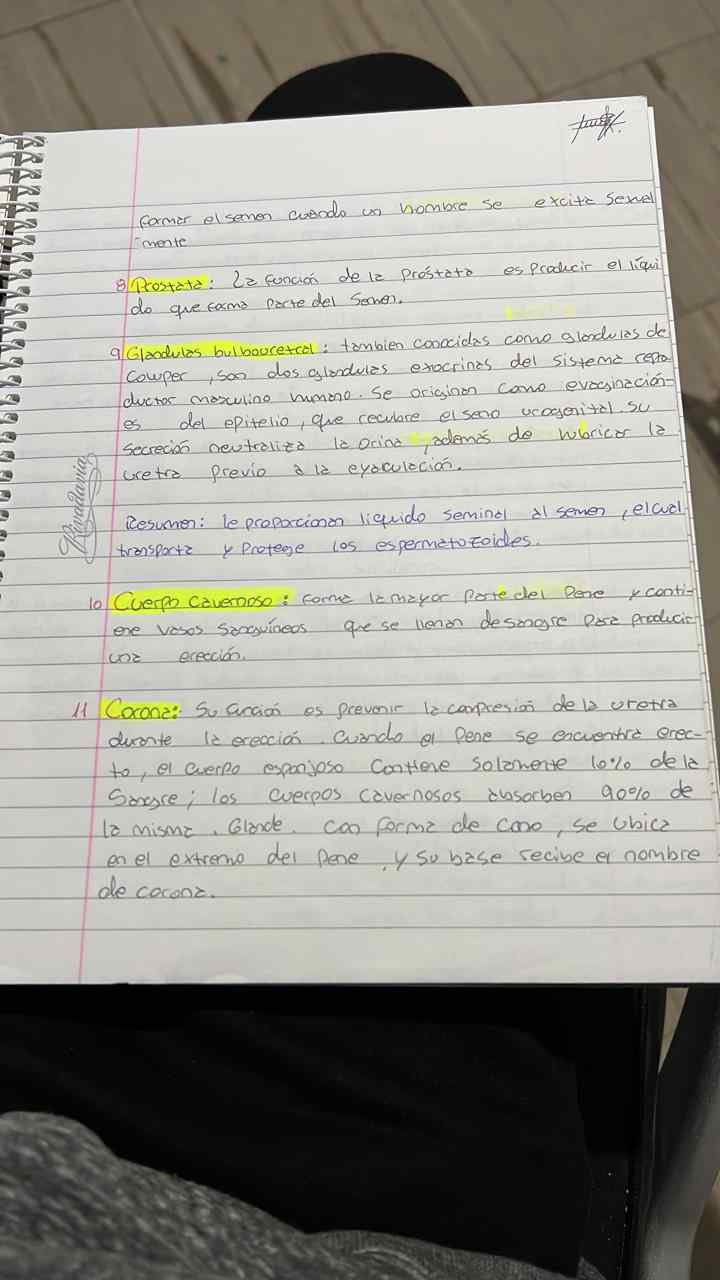 formar el semen cuando un hombre se excita sexual
mente
8 Prostata: La función de la próstata es producir el líqui
do que forma parte del semen.
9 Glandulas bulbouretral: tambien conocidas como glandulas de
Cowper, son dos glandulas exocrinas del sistema repro
ductor masculino humano. Se originan como evaginacion-
es del epitelio, que recubre el seno urogenital. Su
secreción neutraliza la orina, además de lubricar la
uretra previo a la eyaculación.
Rivadavia
Resumen: le proporcionan liquido seminal al semen, el cual
transporta y Protege los espermatozoides.
10 Cuerpo cavernoso: forma la mayor parte del Pene y conti-
ene vasos sanguíneos que se llenan de sangre para producir
una erección.
11 Corona: Su función es prevenir la compresión de la uretra
durante la erección. Cuando el Pene se encuentra erec-
to, el cuerpo esponjoso contiene solamente 10% de la
sangre; los cuerpos cavernosos absorben 90% de
la misma. Glande. Con forma de cono, se ubica
en el extremo del pene, y su base recibe el nombre
de corona.